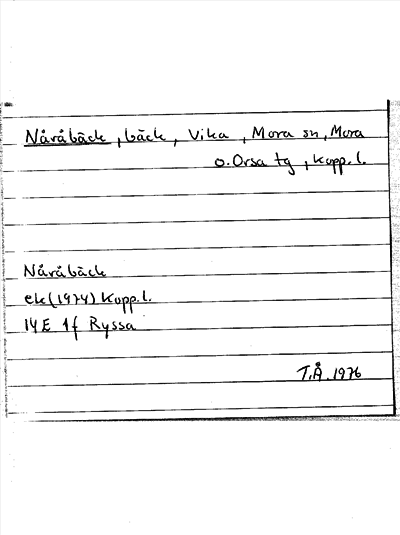 Nåråbäck, bäck, Vika, Mora sn, Mora
o. Orsa tg, Kopp. l.
Nåråbäck
ek (1974) Kopp. l.
14E 1f Ryssa
T.Å. 1976